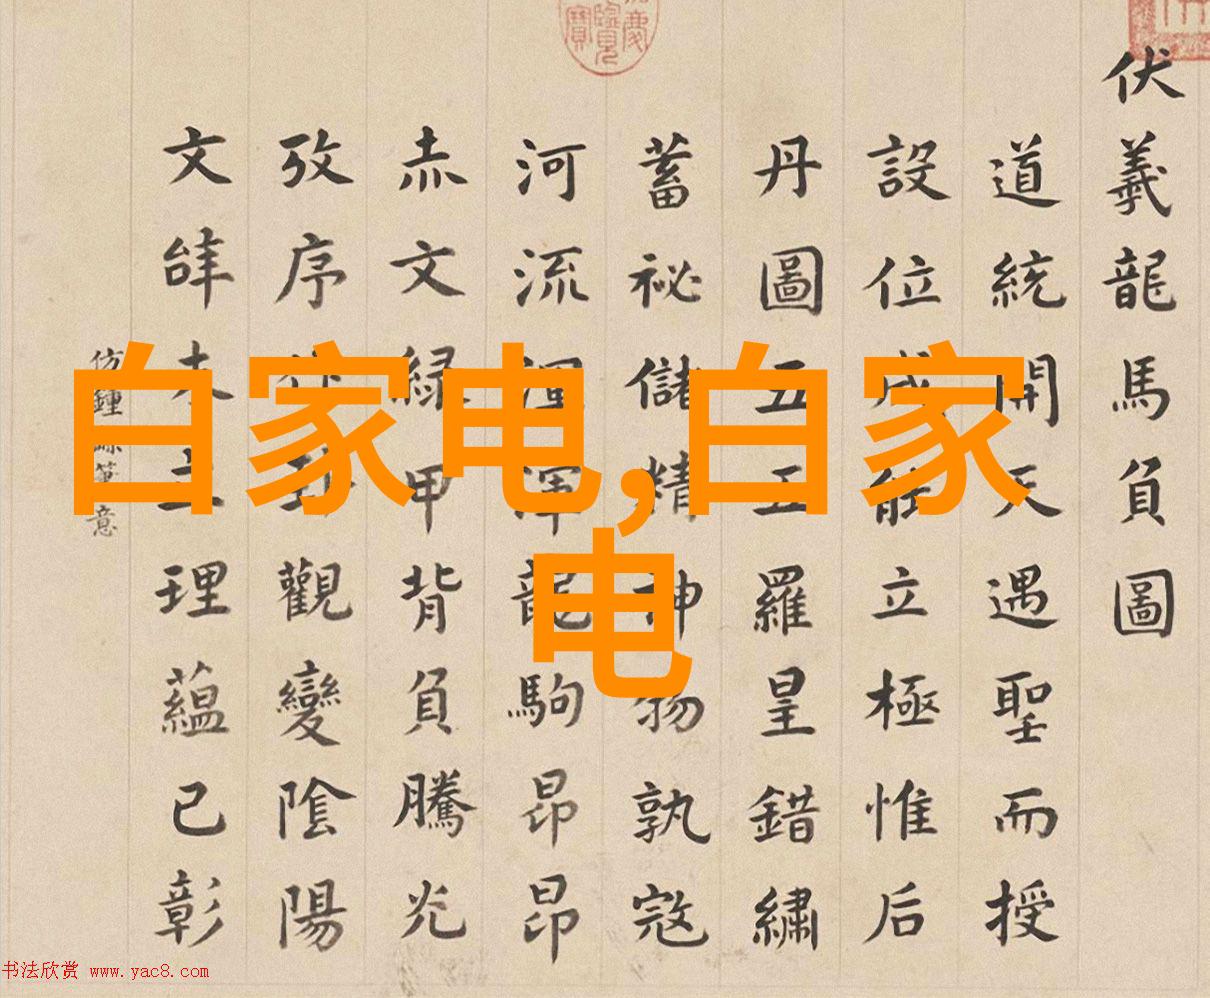 伏羲龍馬負圖
道統開天遇聖而授
設位成能立極惟后
丹圖五五羅皇錯繡
蓄祕儲精神物孰寇
河流渾龍駒昂昂
赤文綠甲背負騰光
攷序觀變陰陽
文辭未立理蘊已彰
仿鍾繇筆意
白家电,白家
电
书法欣赏 www.yac8.com